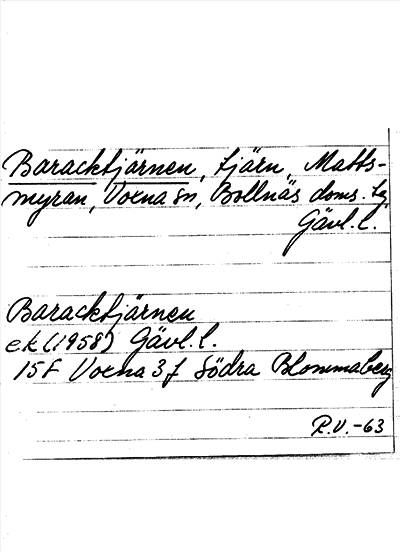 Baracktjärnen, tjärn, Matts-
myran, Voxna sn, Bollnäs doms. tg
Gävl. l.
Baracktjärnen
ek (1958) Gävl. l.
15F Voxna 3f Södra Blommaberg
R.V.-63